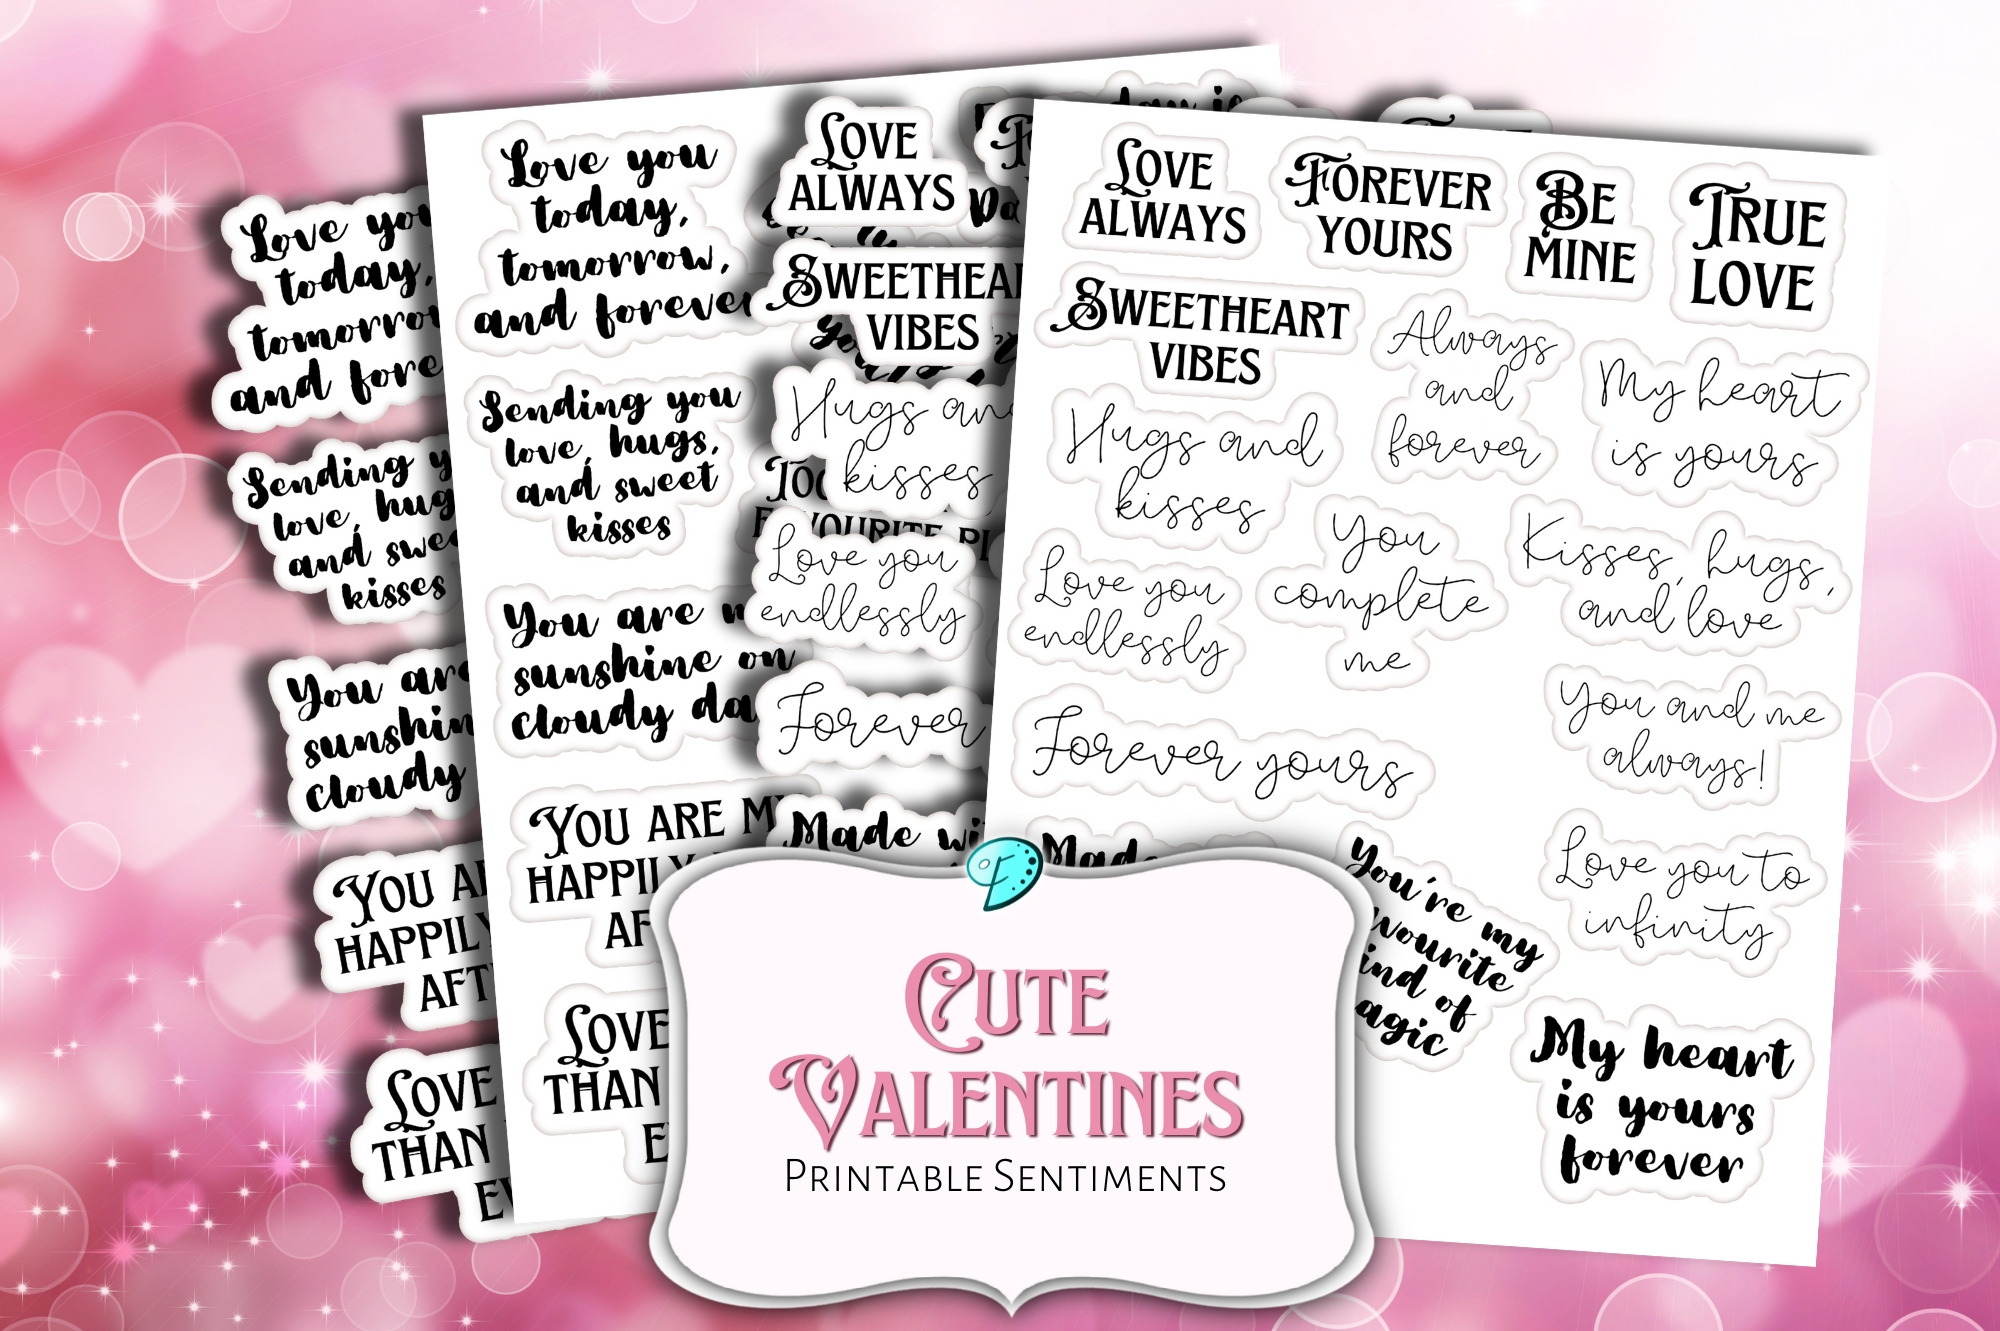 Love you
today,
tomorrow,
and
Sending
love, 
and
kisses
You
cloudy
YOU
HAPPILY
LOVE
THAN
Love you
today,
tomorrow,
and forever
Sending you
love, hugs,
and sweet
kisses
You are
sunshine on
cloudy
YOU ARE
HAPPILY
LOVE
THAN
LOVE
ALWAYS
VIBES
Hugs
kisses
FAVOURITE
Love you
endlessly
Forever
Made
LOVE
ALWAYS
FOREVER
YOURS
BE
MINE
TRUE
LOVE
SWEETHEART
VIBES
Always
and
forever
My heart
is yours
Hugs and
kisses
You
complete
me
Kisses, hugs,
and love
Love you
endlessly
You and me
always!
Forever yours
Love you to
infinity
Made
You're my
of
My heart
is yours
forever
F
CUTE
VALENTINES
PRINTABLE SENTIMENTS